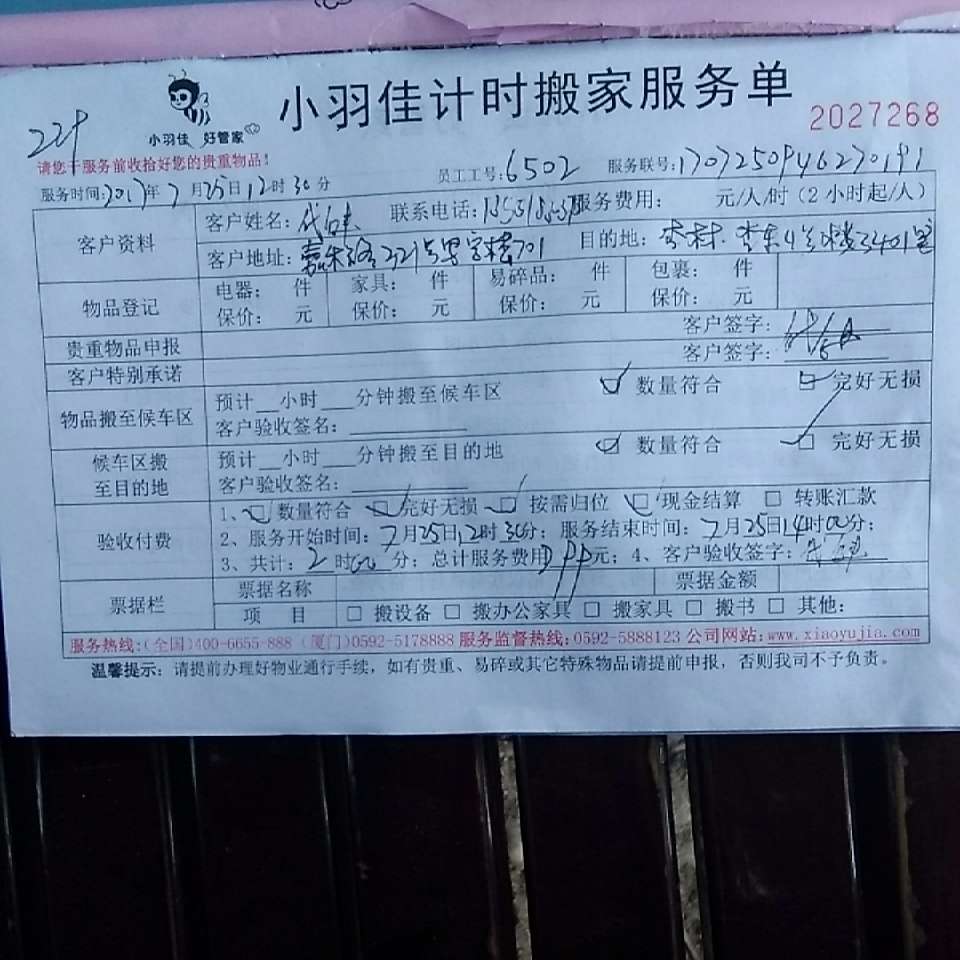 小羽佳计时搬家服务单
小羽佳 好管家
2027268
请您于服务前收拾好您的贵重物品!
员工工号:6502 服务联号:
服务时间:2017年7月25日12时30分
客户资料 客户姓名: 联系电话: 服务费用: 元/人/时(2小时起/人)
客户地址: 目的地:
物品登记 电器: 件 家具: 件 易碎品: 件 包裹: 件
保价: 元 保价: 元 保价: 元 保价: 元
贵重物品申报 客户签字:
客户特别承诺 客户签字:
物品搬至候车区 预计__小时___分钟搬至候车区 数量符合 完好无损
客户验收签名:
候车区搬至目的地 预计__小时___分钟搬至目的地 数量符合 完好无损
客户验收签名:
验收付费 1、数量符合 完好无损 按需归位 现金结算 转账汇款
2、服务开始时间:7月25日12时30分;服务结束时间:7月25日14时00分;
3、共计:2时00分;总计服务费用 元;4、客户验收签字:
票据栏 票据名称 票据金额
项 目 搬设备 搬办公家具 搬家具 搬书 其他:
服务热线:(全国)400-6655-888 (厦门)0592-5178888 服务监督热线:0592-5888123 公司网站:www.xiaoyujia.com
温馨提示:请提前办理好物业通行手续,如有贵重、易碎或其它特殊物品请提前申报,否则我司不予负责。